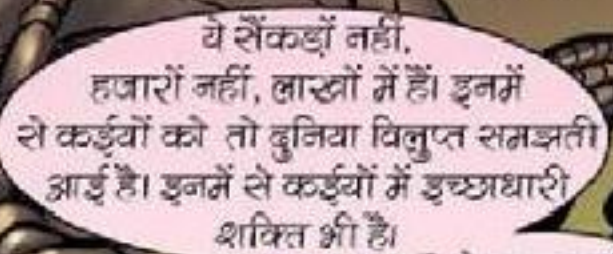 ये सैंकडों नहीं,
हजारों नहीं, लाखों में हैं। इनमें
से कईयों को तो दुनिया विलुप्त समझती
आई है। इनमें से कईयों में इच्छाधारी
शक्ति भी है।